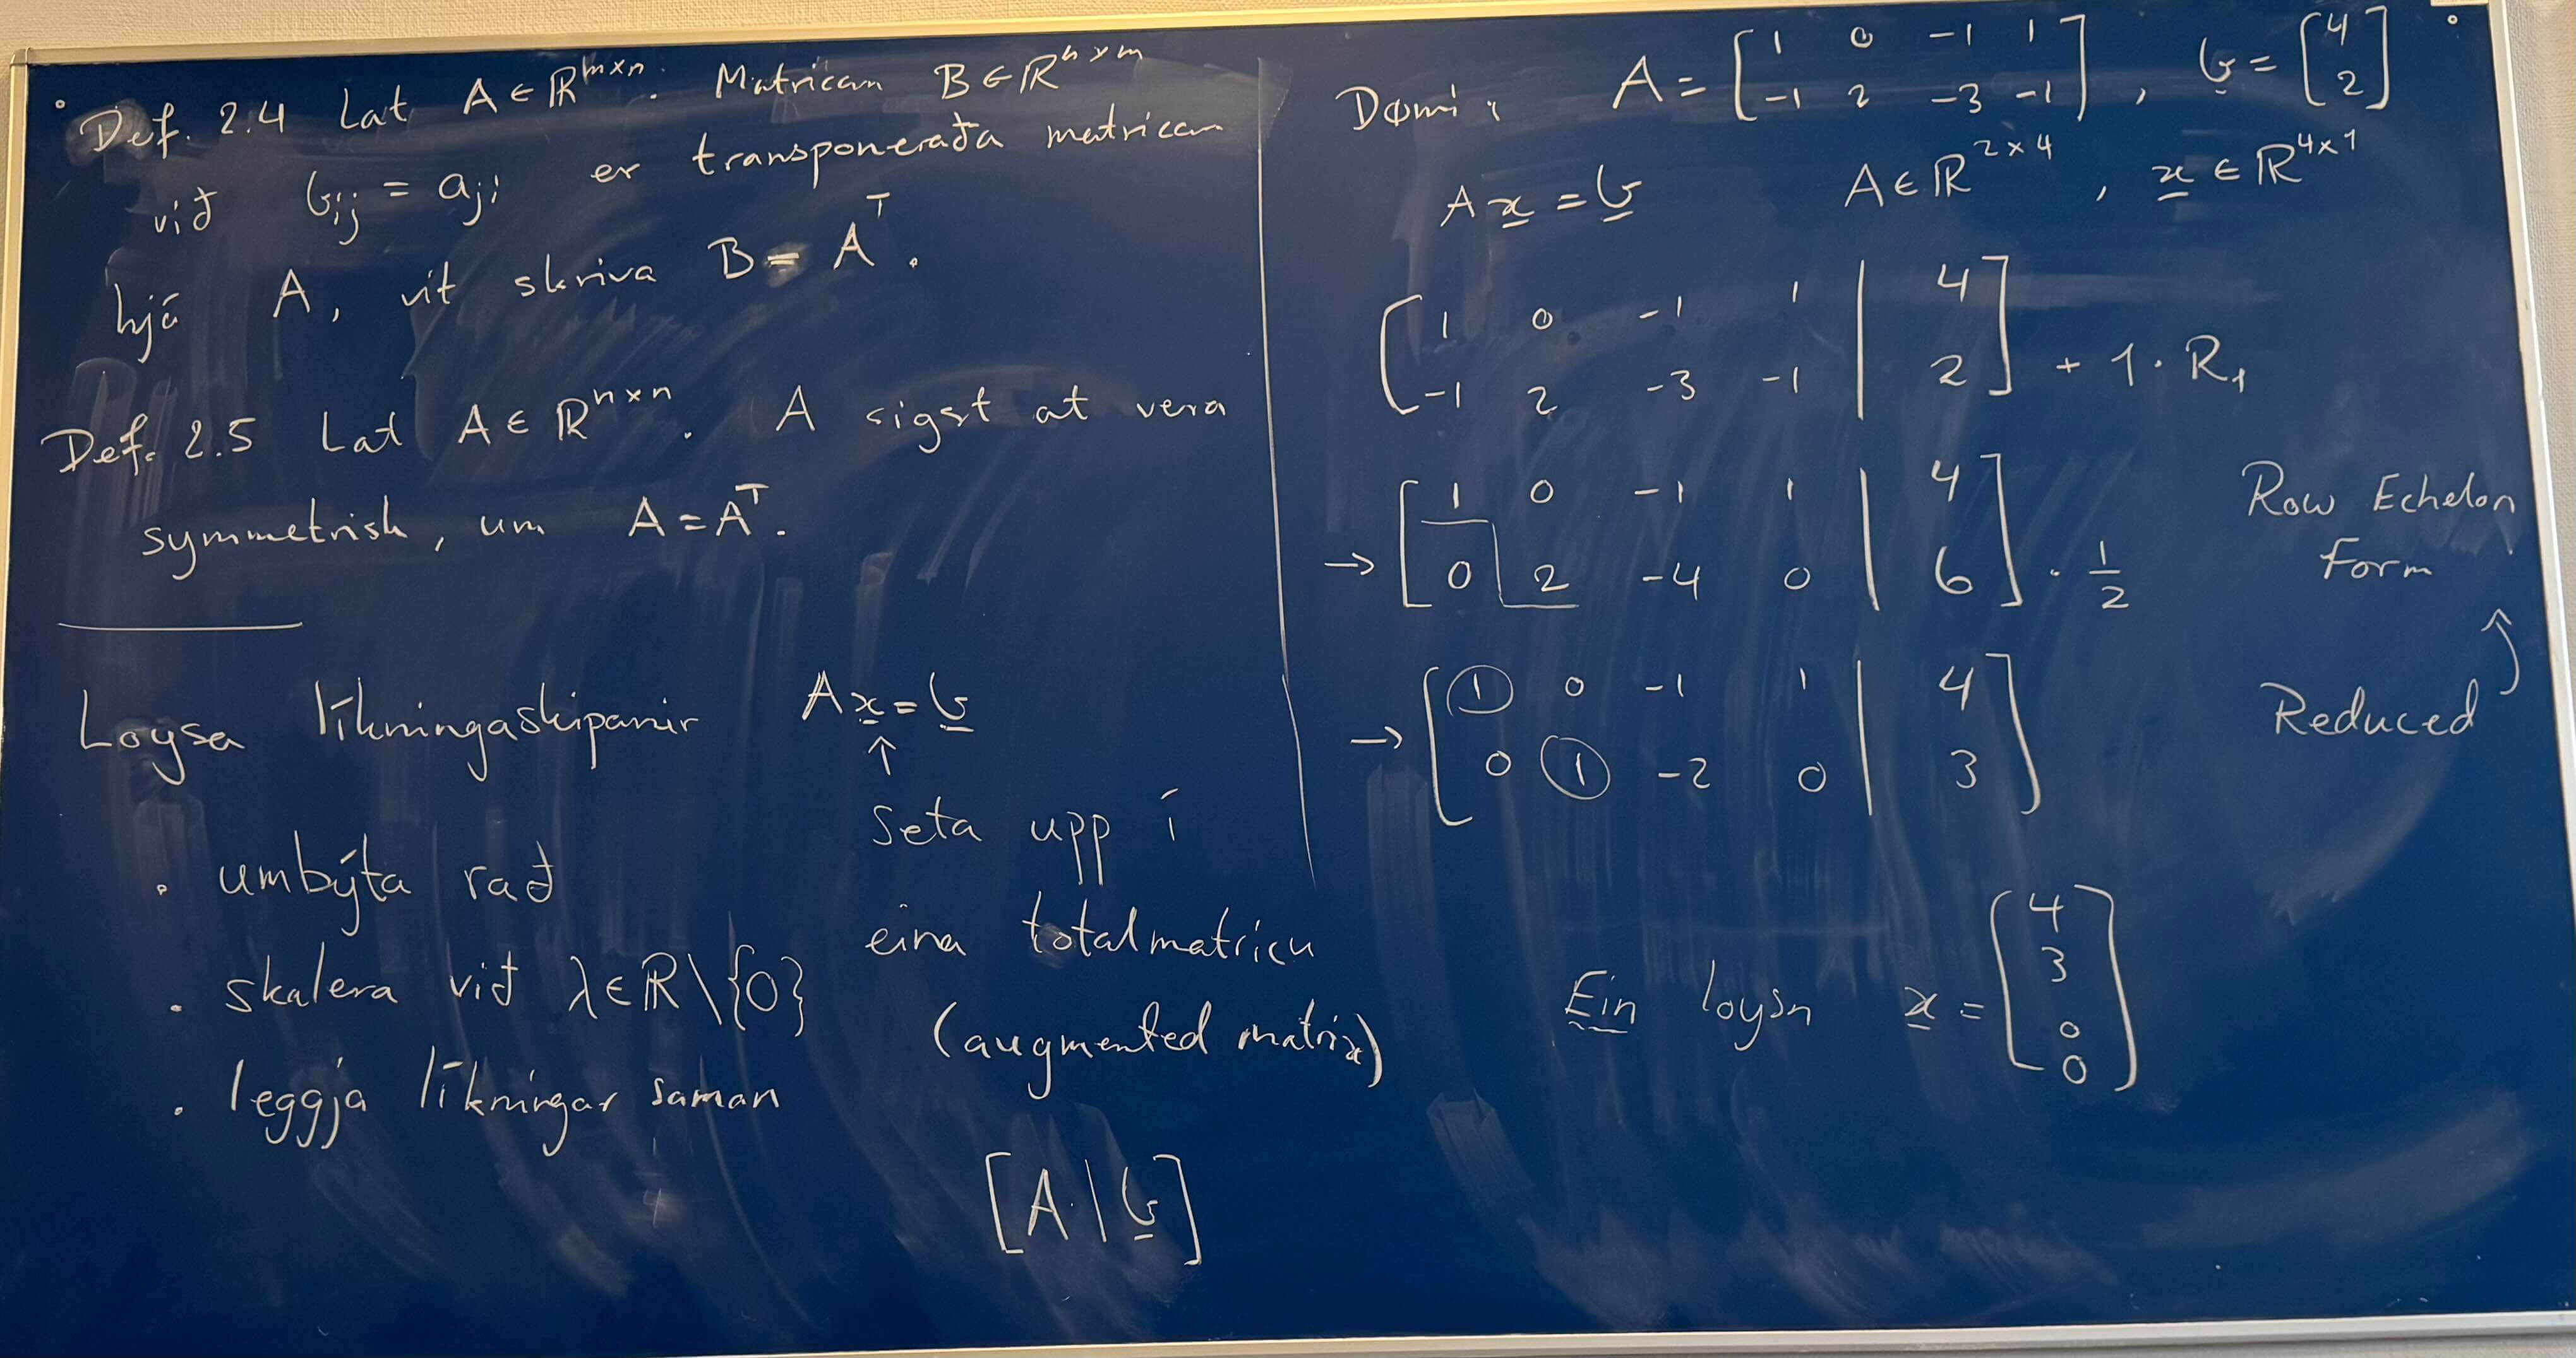 Def. 2.4 Lat A ∈ ℝ^{m×n}. Matrican B ∈ ℝ^{n×m}
við b_{ij} = a_{ji} er transponeraða matrican
hjá A, vit skriva B = A^T.
Def. 2.5 Lat A ∈ ℝ^{n×n}. A sigst at vera
symmetrisk, um A = A^T.
Loysa líkningaskipanir A x = b
↑
seta upp í
eina totalmatricu
(augmented matrix)
[A | b]
· umbýta rað
· skalera við λ ∈ ℝ \ {0}
· leggja líkningar saman
Dømi: A = [1 0 -1 1; -1 2 -3 -1], b = [4; 2]
A x = b A ∈ ℝ^{2×4}, x ∈ ℝ^{4×1}
[1 0 -1 1 | 4
-1 2 -3 -1 | 2] + 1 · R₁
→ [1 0 -1 1 | 4
0 2 -4 0 | 6] · 1/2
Row Echelon
Form
↑
Reduced
→ [1 0 -1 1 | 4
0 1 -2 0 | 3]
Ein loysn x = [4; 3; 0; 0]